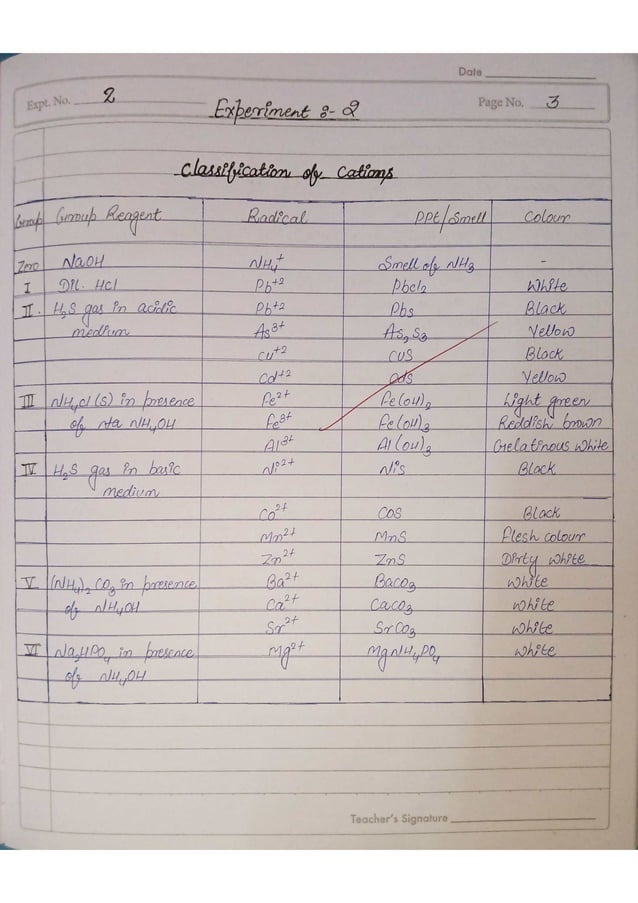 Date
Expt. No. 2
Experiment :- 2
Page No. 3
Classification of Cations
Group Group Reagent Radical PPt/Smell Colour
Zero NaOH NH4+ Smell of NH3 -
I Dil. HCl Pb+2 PbCl2 White
II. H2S gas in acidic Pb+2 Pbs Black
medium As3+ As2S3 Yellow
Cu+2 CuS Black
Cd+2 CdS Yellow
III NH4Cl(s) in presence Fe2+ Fe(OH)2 Light green
of NH4OH Fe3+ Fe(OH)3 Reddish brown
Al3+ Al(OH)3 Gelatinous White
IV H2S gas in basic Ni2+ Nis Black
medium
Co2+ COS Black
Mn2+ MnS Flesh colour
Zn2+ ZnS Dirty white
V (NH4)2 CO3 in presence Ba2+ BaCO3 White
of NH4OH Ca2+ CaCO3 white
Sr2+ SrCO3 white
VI Na2HPO4 in presence Mg2+ MgNH4PO4 white
of NH4OH
Teacher's Signature